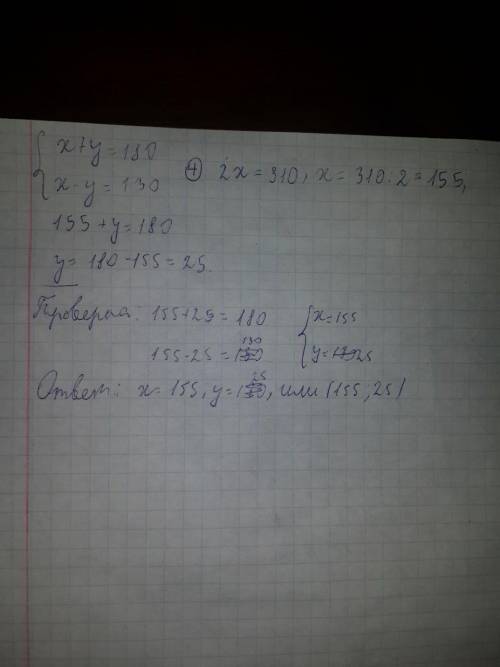 { x+y=180
x-y=130
⊕ 2x=310, x=310:2=155,
155+y=180
y=180-155=25.
Проверка: 155+25=180
155-25=130
{ x=155
y=25
Ответ: x=155, y=25, или (155; 25)